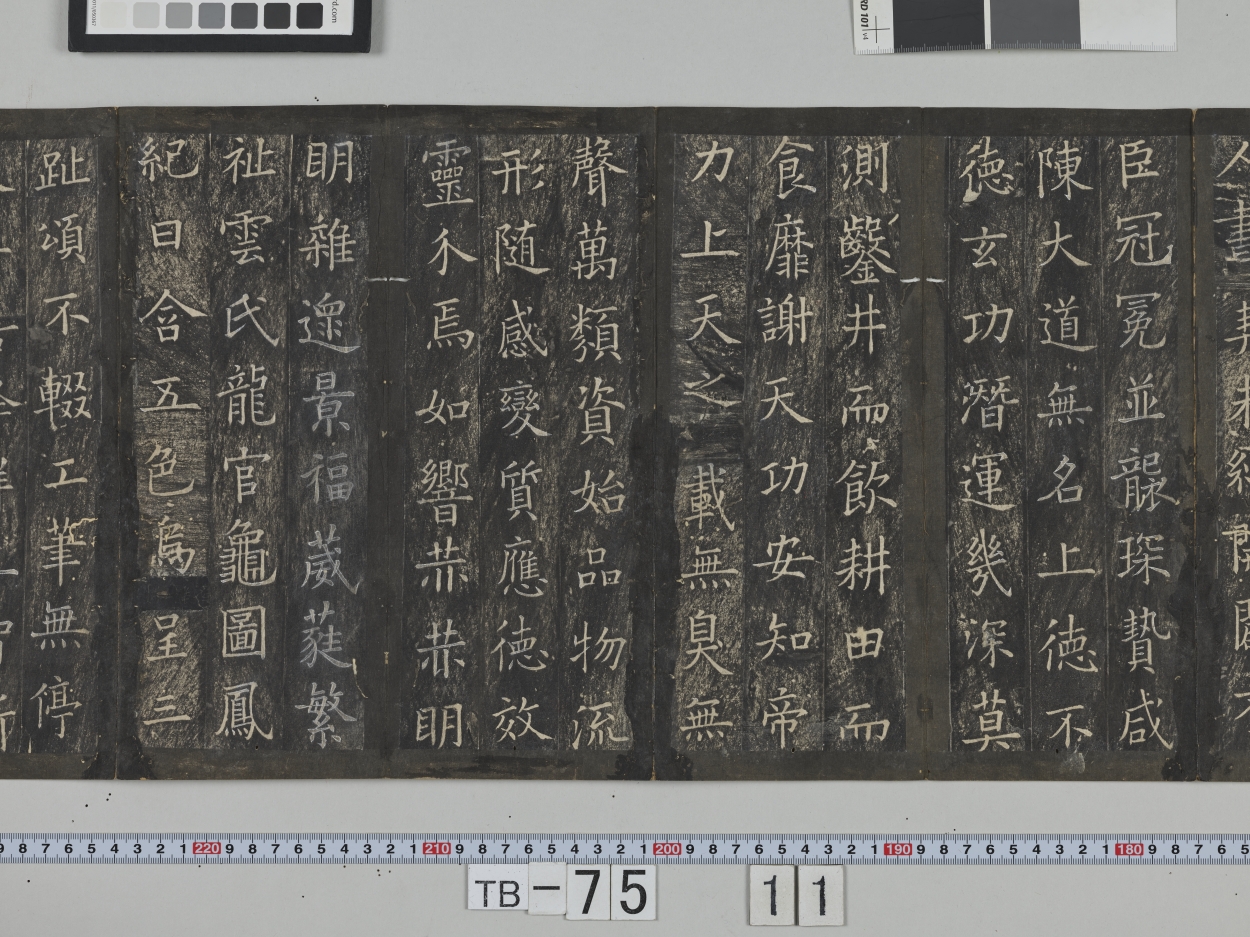 人書契未紀開闢不
臣冠冕並襲琛贄咸
陳大道無名上德不
德玄功潛運幾深莫
測鑿井而飲耕田而
食靡謝天功安知帝
力上天之載無臭無
聲萬類資始品物流
形隨感變質應德效
靈介焉如響赫赫明
明雜遝景福葳蕤繁
祉雲氏龍官龜圖鳳
紀日含五色烏呈三
趾頌不輟工筆無停
TB-75 11